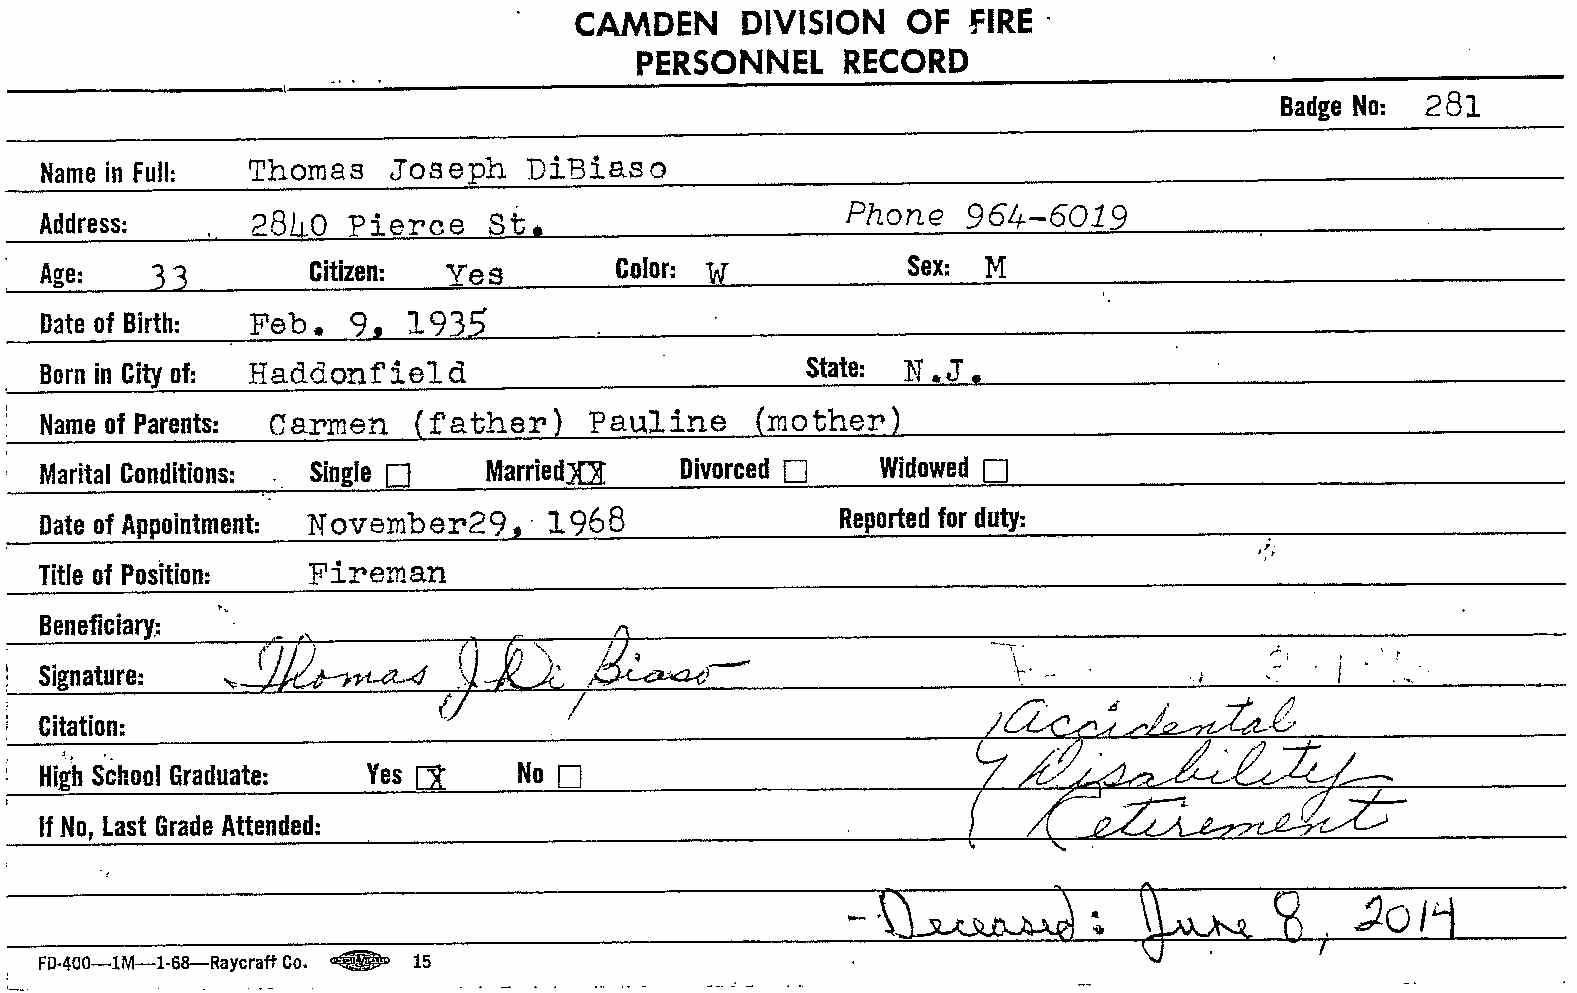 CAMDEN DIVISION OF FIRE
PERSONNEL RECORD
Badge No: 281
Name in Full: Thomas Joseph DiBiaso
Address: 2840 Pierce St. Phone 964-6019
Age: 33 Citizen: Yes Color: W Sex: M
Date of Birth: Feb. 9, 1935
Born in City of: Haddonfield State: N.J.
Name of Parents: Carmen (father) Pauline (mother)
Marital Conditions: Single □ Married XX Divorced □ Widowed □
Date of Appointment: November29, 1968 Reported for duty:
Title of Position: Fireman
Beneficiary:
Signature: Thomas J Di Biaso
Citation: Accidental
High School Graduate: Yes X No □ Disability
If No, Last Grade Attended: Retirement
- Deceased: June 8, 2014
FD-400—1M—1-68—Raycraft Co. 15